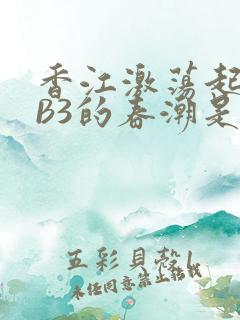 香江激荡起
B3的春潮是
五彩貝殼|
未经同意禁止转载